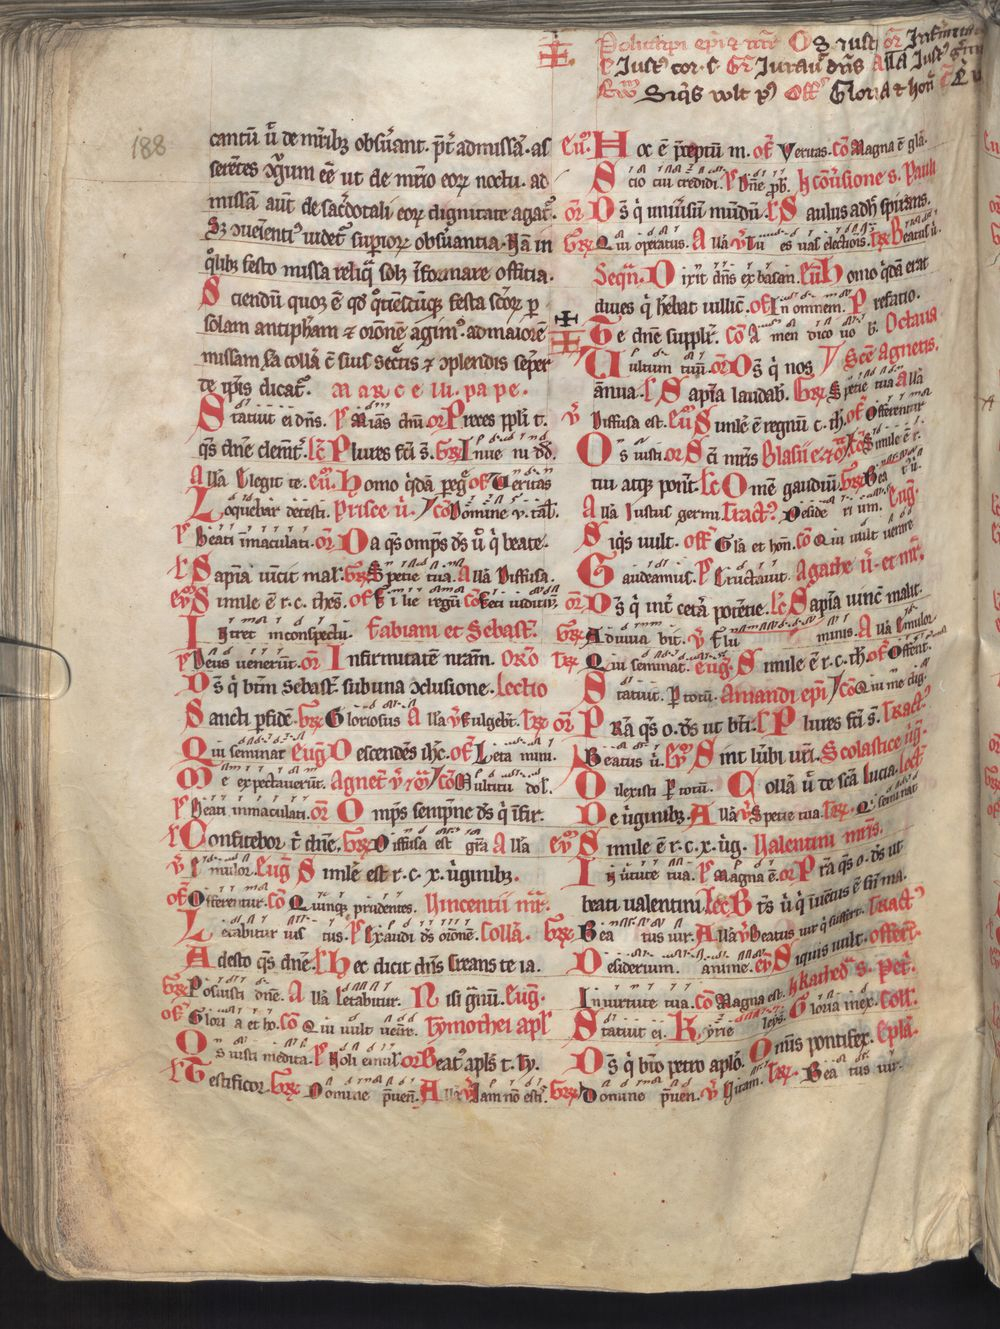 Policarpi epi & mr̄r O s iusti or̄ Infirmita
Iustꝰ cor. Gr̄ Iurauit dn̄s All̄a Iustꝰ
Siq̄s vult Off̄ Gloria & hon̄
188
cantū ū̓ de mr̄ibꝫ obẜuant. p̓t admissā. as
serētes ꝯgruum eē ut de mr̄io eorꝫ noctu. ad
missā aūt de sac̓dotali eorꝫ dignitate agat̓.
Sꝫ ꝯueiēti̓ uidet̓ sup̓iorꝫ obẜuantia. Nā in
q̓libꝫ festo missa reliq̄ solꝫ īformare offitia.
Sciendū quoꝫ ē qd̓ q̓tiēscūqꝫ festa sc̄orꝫ ꝑ
solam antiph̓am & or̄onē agim̓. ad maiorē
missam sa collā ē siue sec̓tis & ꝯplendis sep̓er
te ip̄is dicat̓. Marcelli. pape.
Statuit ei dn̄s. ps̄ Mīas dn̄i or̄ Preces pp̄li t.
q̄s dn̄e clemt̓. Lc̄ Plures fc̄i s̄. Gr̄ Inue ni dd̓.
All̄a Elegit te. eū̄. Homo q̓dā peḡ of̄ Veritas
Loquebar de testi. Prisce ū̓. cō Domine v. tab̓.
ps̄ Beati īmaculati. or̄ Da q̄s omp̄s ds̄ ū̓ q̓ beate.
l̄ Sapīa uincit mal̓. Gr̄ Spetie tua. All̄a Diffusa.
eū̄ Simile ē r. c. thes̄. of̄ Fi lie regū cō Feci iuditiū.
Intret in conspectu. Fabiani et Sebast̓.
ps̄ Deus uenerūt. or̄ Infirmitatē nr̄am. Or̄o
Ds̄ q̓ btm̄ Sebast̓. sub una ꝯclusione. Lectio
Sancti p̱ fidē. Gr̄ Gloriosus All̄a v̓ Fulgebt̓. Gr̄
Qui seminat eūg̓ Descendēs ih̄c. of̄ Letamini.
Me expectauerūt. Agnet̓ v̓ & m̄ cō Multitu do l̓.
ps̄ Beati inmaculati. or̄ Omp̄s sempn̄e ds̄ q̓ īfir.
l̄ Confitebor t̓ dn̄e. Gr̄ Diffusa est gr̄a All̄a
v̓ Emulor. Eūg̓ Simile est r. c. x. uīginibꝫ.
of̄ Offerentur. cō Quinqꝫ prudentes. Vincentii mr̄.
Letabitur ius tus. ps̄ Exaudi ds̄ or̄onē. Collā.
Adesto q̄s dn̄e. l̄ Hec dicit dn̄s creans te ia.
Gr̄ Posuisti dn̄e. All̄a Letabitur. Nisi gr̄nū. Eūg̓.
of̄ Glori a et ho. cō Qui uult uenīre. Thymothei apl̄i
Os iusti medita. ps̄ Noli emul̓ or̄ Beat̓ apl̄s t. hy.
l̄ Testificor. Gr̄ Domine p̄uen̄. All̄a v̓ Iam nō esti.
eū̄. Hoc ē p̄ceptū m. of̄ Veritas. cō Magna ē gl̄a.
Scio cui credidi. ps̄ Dn̄e ꝓb̓. In cōu̓sione s. Pauli
or̄ Ds̄ q̓ uniu̓sum mundū. l̄ Saulus adh̓ spirans.
Gr̄ Qui operatus. All̄a v̓ Tu es uas electiōis. Gr̄ Beatus ū̓.
Seqū. Dixit dn̄s ex basan. Eū̄ Homo q̓dā erat
diues q̓ h̄ebat uillic̄. of̄ In omnem. Prefatio.
Te dn̄e supplit̓. cō Amen dico uo b̓. Octaua
Uultum tuū. or̄ Ds̄ q̓ nos Sc̄e Agnetis.
ānua. l̄ Sapīa laudab̓. Gr̄ Spetie tua All̄a
v̓ Diffusa est. Eū̄ Simile ē regnū c. th̓. of̄ Offerentur
Os iusti or̄ Sc̄i mr̄is Blasii e. cō Simile ē r.
tui atqꝫ pont̓. Lc̄ Omē gaudiū. Gr̄ Bea tus ū̓.
All̄a Iustus germi. Tract̓. Deside rium. Eūg̓.
Siq̓s uult. off̄ Gl̄a et hon̄. cō Qui uult uenire
Gaudeamus. ps̄ Eructauit. Agathe ū̓. et mr̄.
or̄ Ds̄ q̓ int̓ cetā potētie. Lc̄ Sapīa uinc̄ malit.
Gr̄ Adiuua bit. v̓ Flu minis. All̄a Emulor
Gr̄ Qui seminat. eūg̓. Simile ē r. c. th̓. of̄ Offerent̓.
Statuit. ꝑ totū. Amandi epi cō Qui me dig.
or̄ Pr̄a q̄s o. ds̄ ut bt̄i. l̄ Plures fc̄i s̄. Tract̓
Beatus ū̓. Eū̄ Sint lūbi ur̄i. Scolastice ū̓g̓.
Dilexisti ꝑ totū. Collā ū̓ de sc̄a Lucia. Lect̓
De ū̓ginibꝫ. All̄a v̓ Spetie tua. Gr̄. Qui seminat
eū̄ Simile ē r. c. x. ū̓g. Valentini mr̄is.
In uirtute tua. ps̄ Magna ē. or̄ Pr̄a q̄s o. ds̄ ut
beati ualentini. Lec̄ Bt̄s ū̓ q̓ inuētus ē sn̄ ma.
Gr̄ Bea tus uir. All̄a v̓ Beatus uir q̓ suffert. Tract̓
Desiderium. anime. eū̄ Siquis uult. offert̓.
In uirtute tua. cō Magna est. In Kathed̓ s. Pet̓.
Statuit ei. Kyrie leys. Gloria in ex. Coll̓.
Ds̄ q̓ bt̄o petro aplō. Omīs pontifex. Eplā.
Gr̄ Domine p̄uen. v̓ Vitam. Gr̄. Bea tus uir.